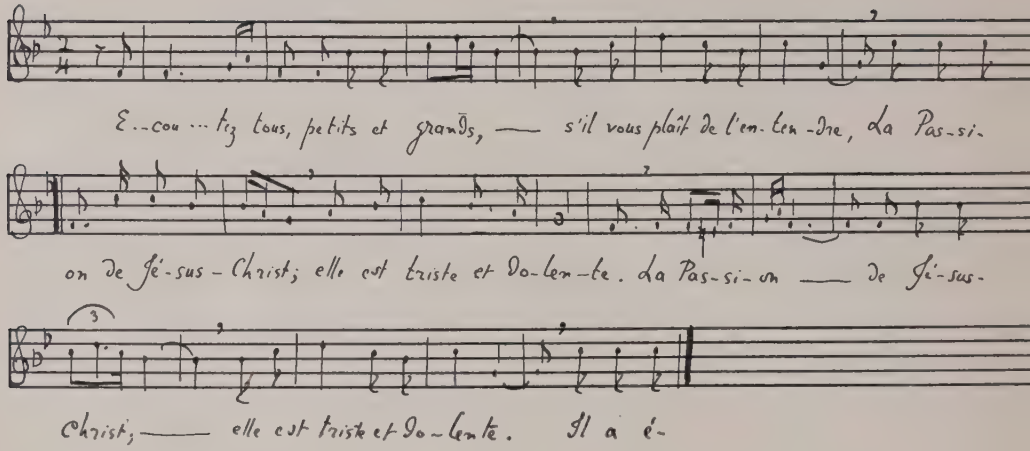 E..cou...tez tous, petits et grands, — s'il vous plaît de l'en-ten-dre, La Pas-si-
on de Jé-sus-Christ; elle est triste et do-len-te. La Pas-si-on — de Jé-sus-
3
Christ; — elle est triste et do-lente. Il a é-